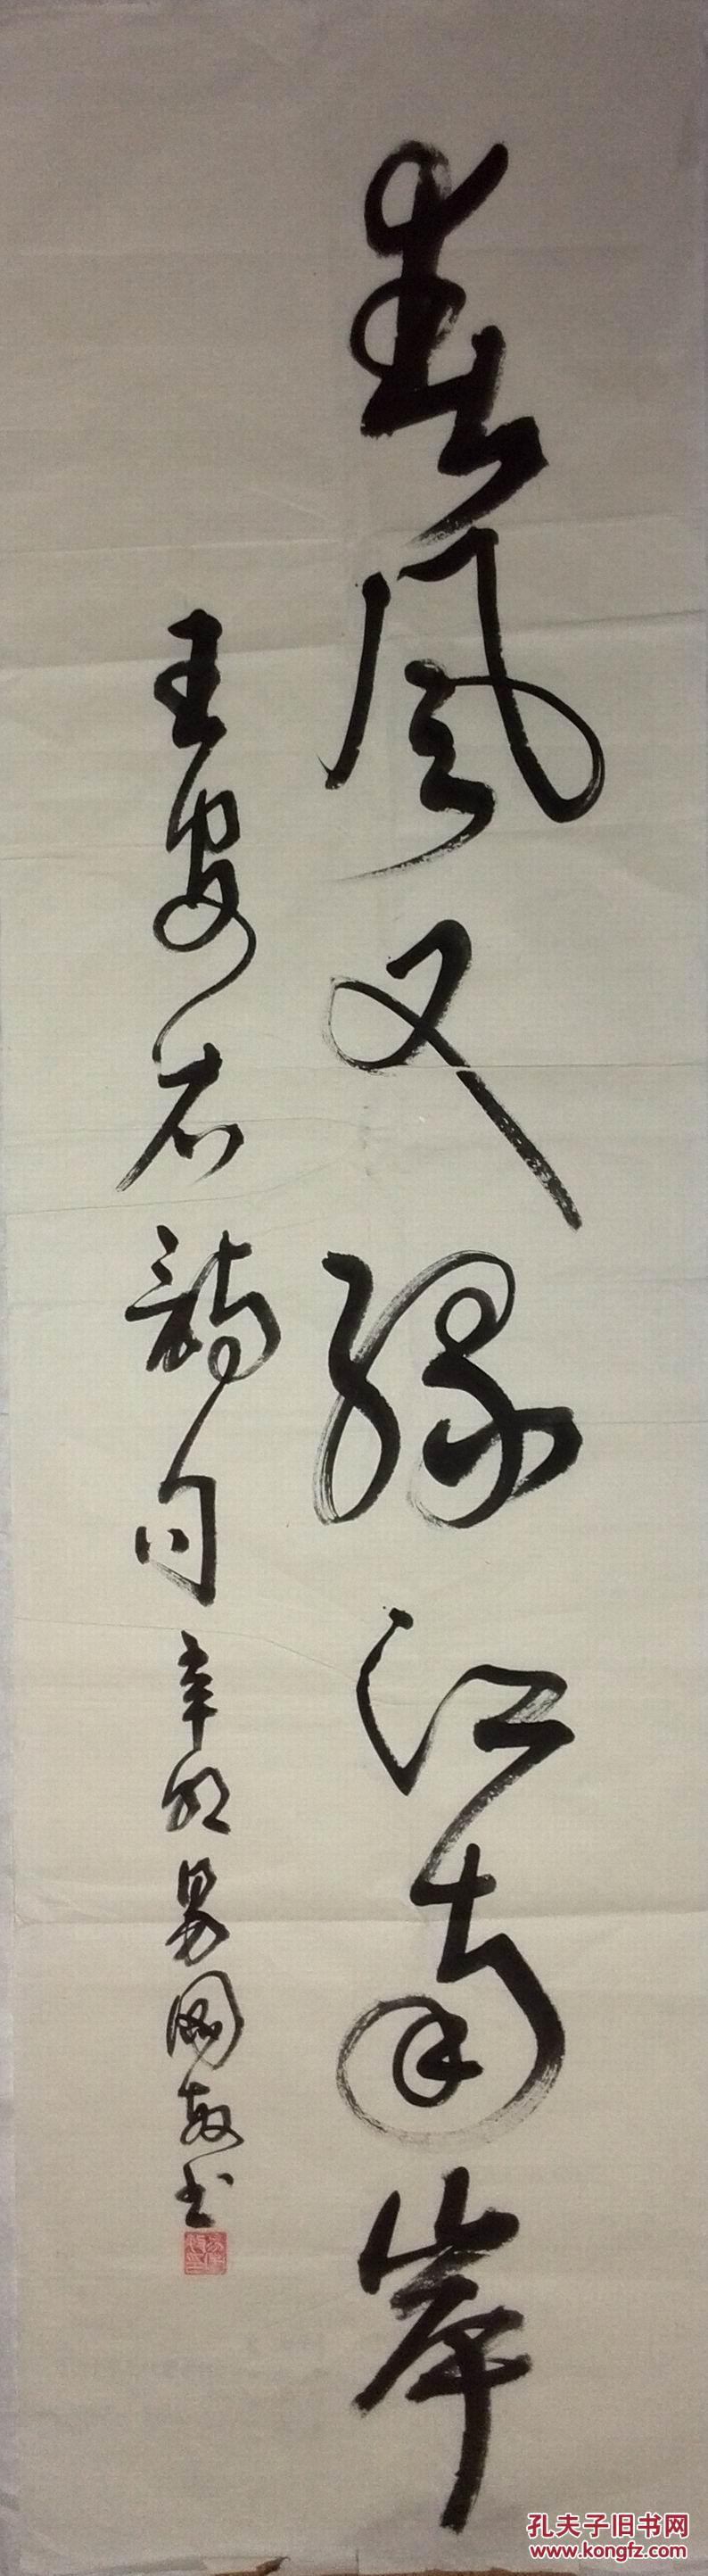 春风又绿江南岸
王安石诗句 辛卯 易国敏书
孔夫子旧书网
www.kongfz.com